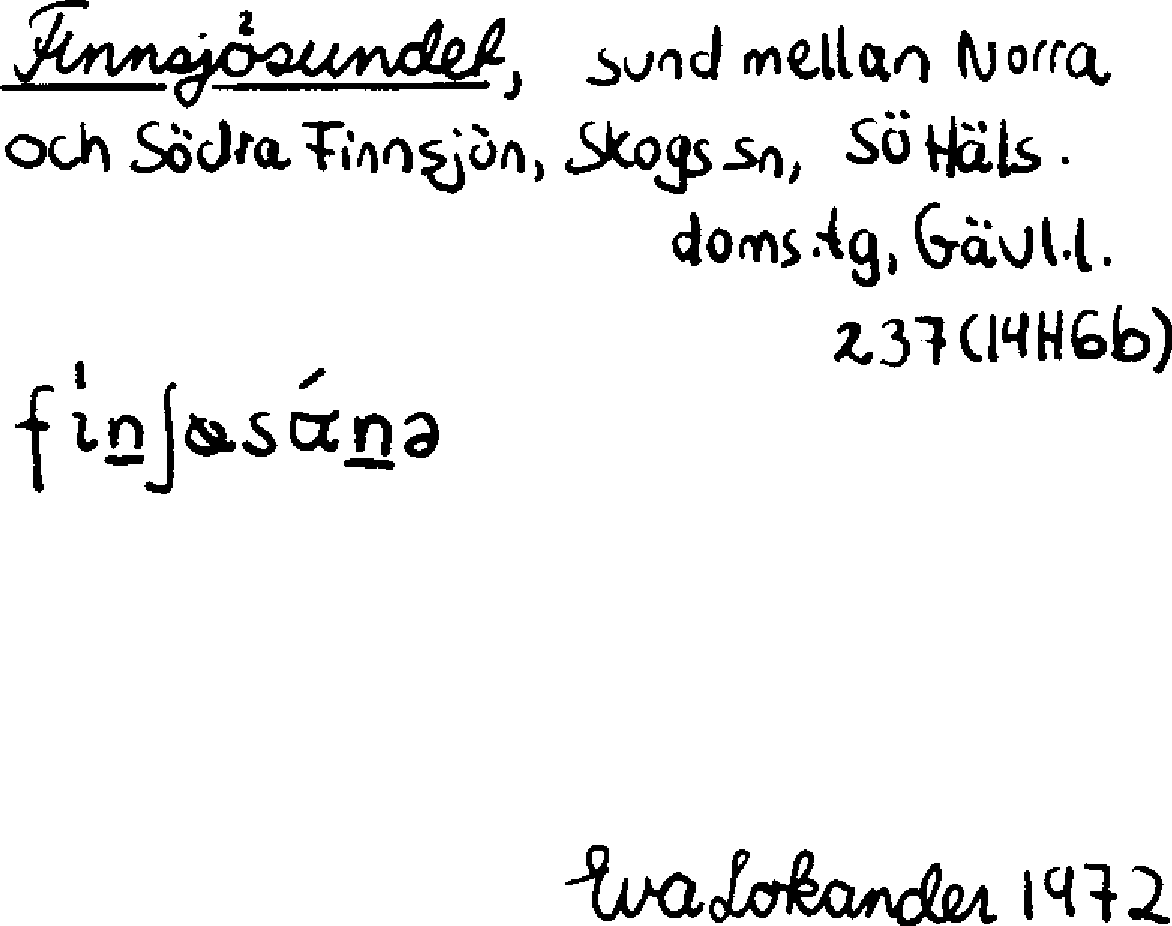 Finnsjösundet, sund mellan Norra
och Södra Finnsjön, Skogs sn, SöHäls.
doms.tg, Gävl.l.
237 (14H6b)
Ewa Lokander 1972